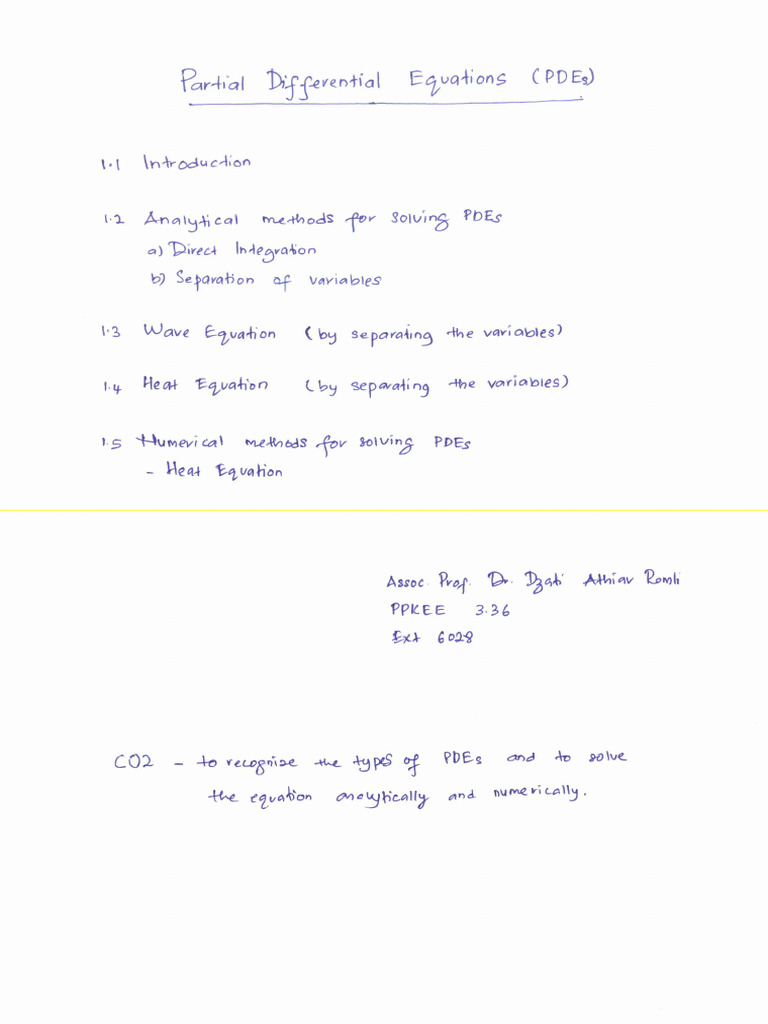 Partial Differential Equations (PDEs)
1.1 Introduction
1.2 Analytical methods for solving PDEs
a) Direct Integration
b) Separation of variables
1.3 Wave Equation (by separating the variables)
1.4 Heat Equation (by separating the variables)
1.5 Numerical methods for solving PDEs
- Heat Equation
Assoc. Prof. Dr. Dzati Athiar Ramli
PPKEE 3.36
Ext 6028
CO2 - to recognize the types of PDEs and to solve
the equation analytically and numerically.